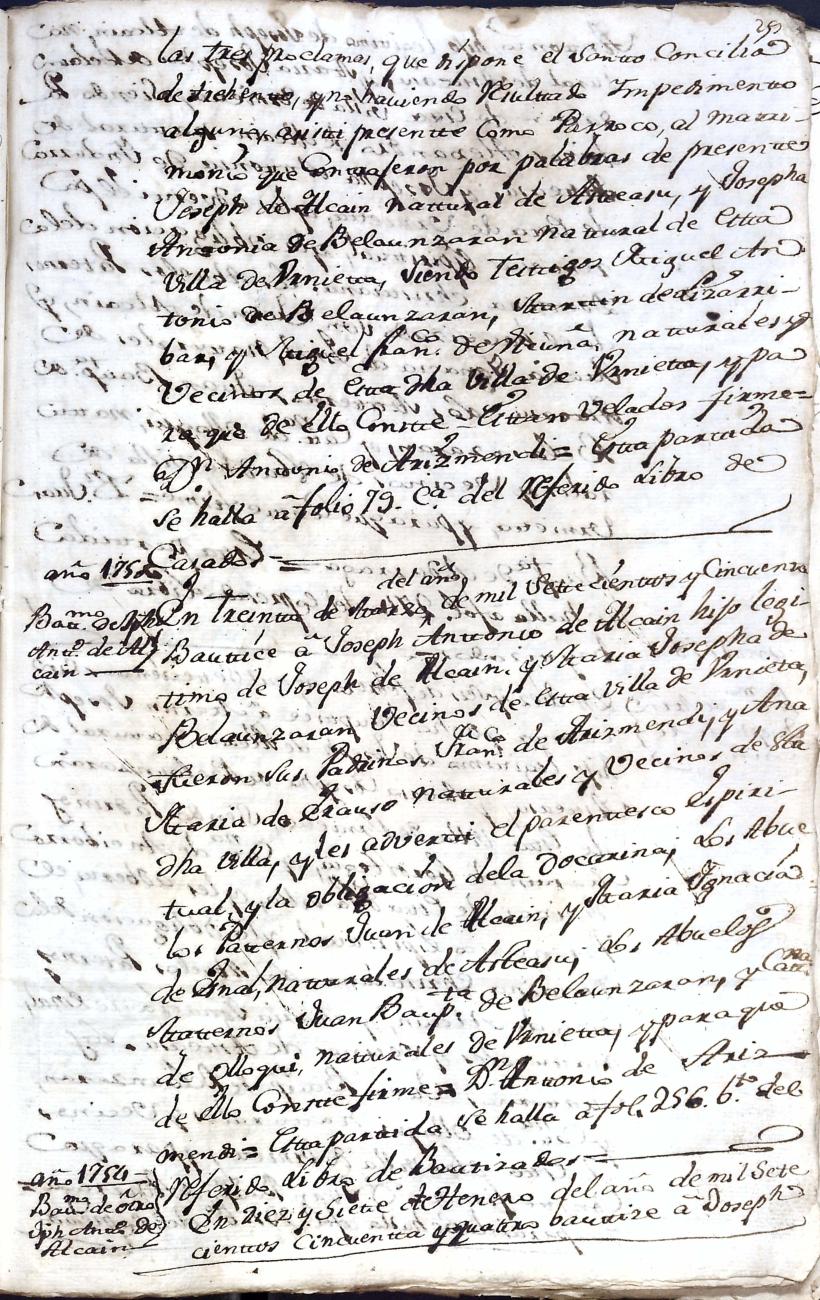 las tres proclamas, que dispone el Santo Concilio
de trehento, y no haviendo resultado Impedimento
alguno, asisti presentte Como Parroco, al Mattri-
monio que Contrajeron por palabras de presentte
Joseph de Alcain nattural de Asteasu, y Josepha
Antonia de Belaunzaran nattural de Estta
Villa de Urnietta, siendo Testtigos Miguel An
tonio de Belaunzaran, Marttin de Lizarri-
bar, y Miguel Fran.co de Acuña, natturales y
Vecinos de Estta dha Villa de Urnietta, y pa
ra que de ello Constte Esttan Velados firme=
D.n Anttonio de Arizmendi= Estta parttida
se halla â folio 79. del referido Libro de
Casados=
año 1750
Bau.mo de Jph
Antt.o de Al
cain
En treintta de Marzo del año de mil settecientos y Cincuenta
Bautticé â Joseph Antonio de Alcain hijo legi-
timo de Joseph de Alcain, y Maria Josepha de
Belaunzaran, Vecinos de Estta Villa de Urnieta,
fueron sus Padrinos Fran.co de Arizmendi, y Ana
Maria de Erauso natturales y Vecinos de Estta
dha Villa, y les adverttí el parenttesco Espiri-
tual, y la obligación dela Docttrina, Los Abue
los Patternos Juan de Alcain, y Maria Ignacia
de natturales de Asteasu, Los Abuelos
Matternos Juan Baup.ta de Belaunzaran, y
de Olloqui, natturales de Urnietta, y para que
de ello Constte firme= D.n Antonio de Ariz
mendi= Estta parttida se halla â fol. 256. b.to del
referido Libro de Bautizados=
año 1754
Bau.mo de ôtro
Jph Antt.o de
Alcain
En Diez y Siete de Henero del año de mil Sete
cienttos Cincuentta y quattro bautize â Joseph